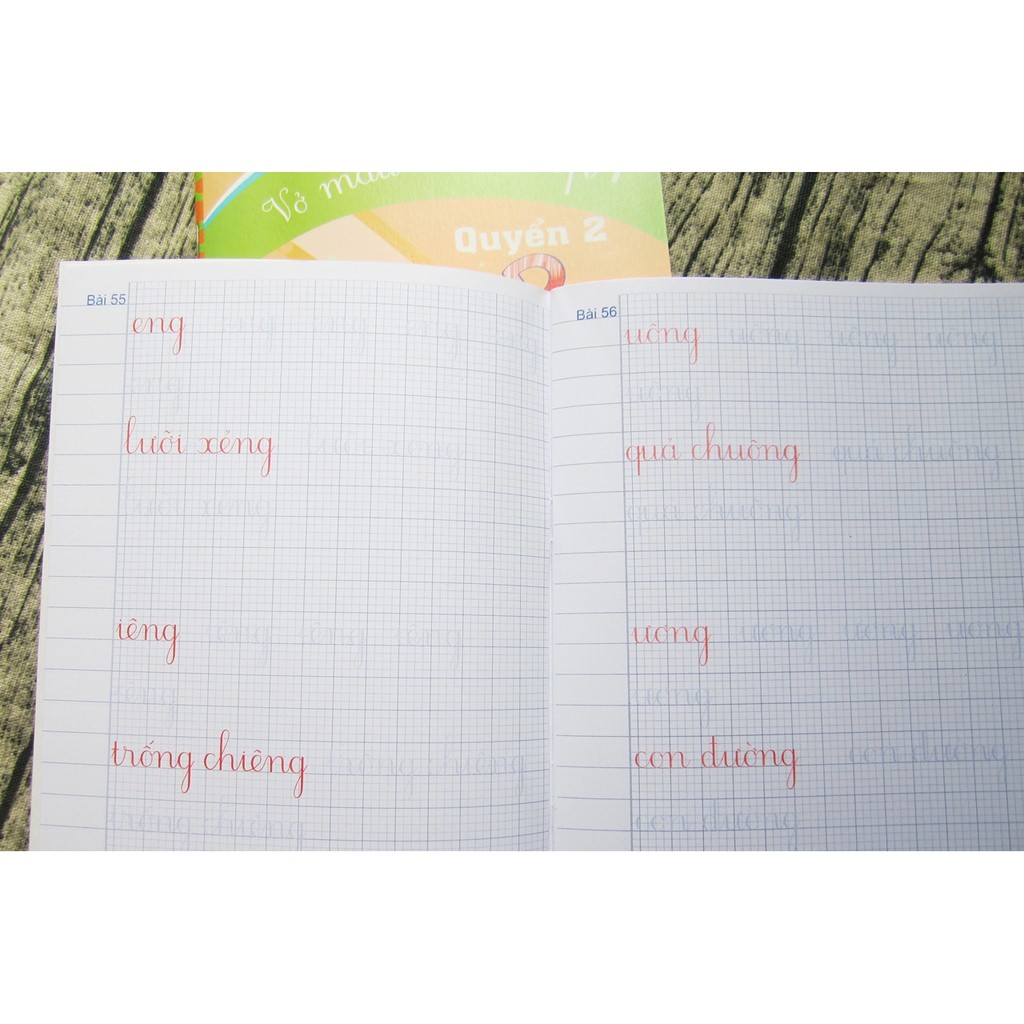 Vở mẫu
Quyển 2
Bài 55
eng eng eng eng eng
eng
lưỡi xẻng lưỡi xẻng
lưỡi xẻng
iêng iêng iêng iêng
iêng
trống chiêng trống chiêng
trống chiêng
Bài 56
uông uông uông uông
uông
quả chuông quả chuông
quả chuông
ương ương ương ương
ương
con đường con đường
con đường